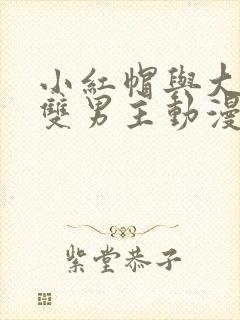 小紅帽與大
雙男主動漫
紫堂恭子